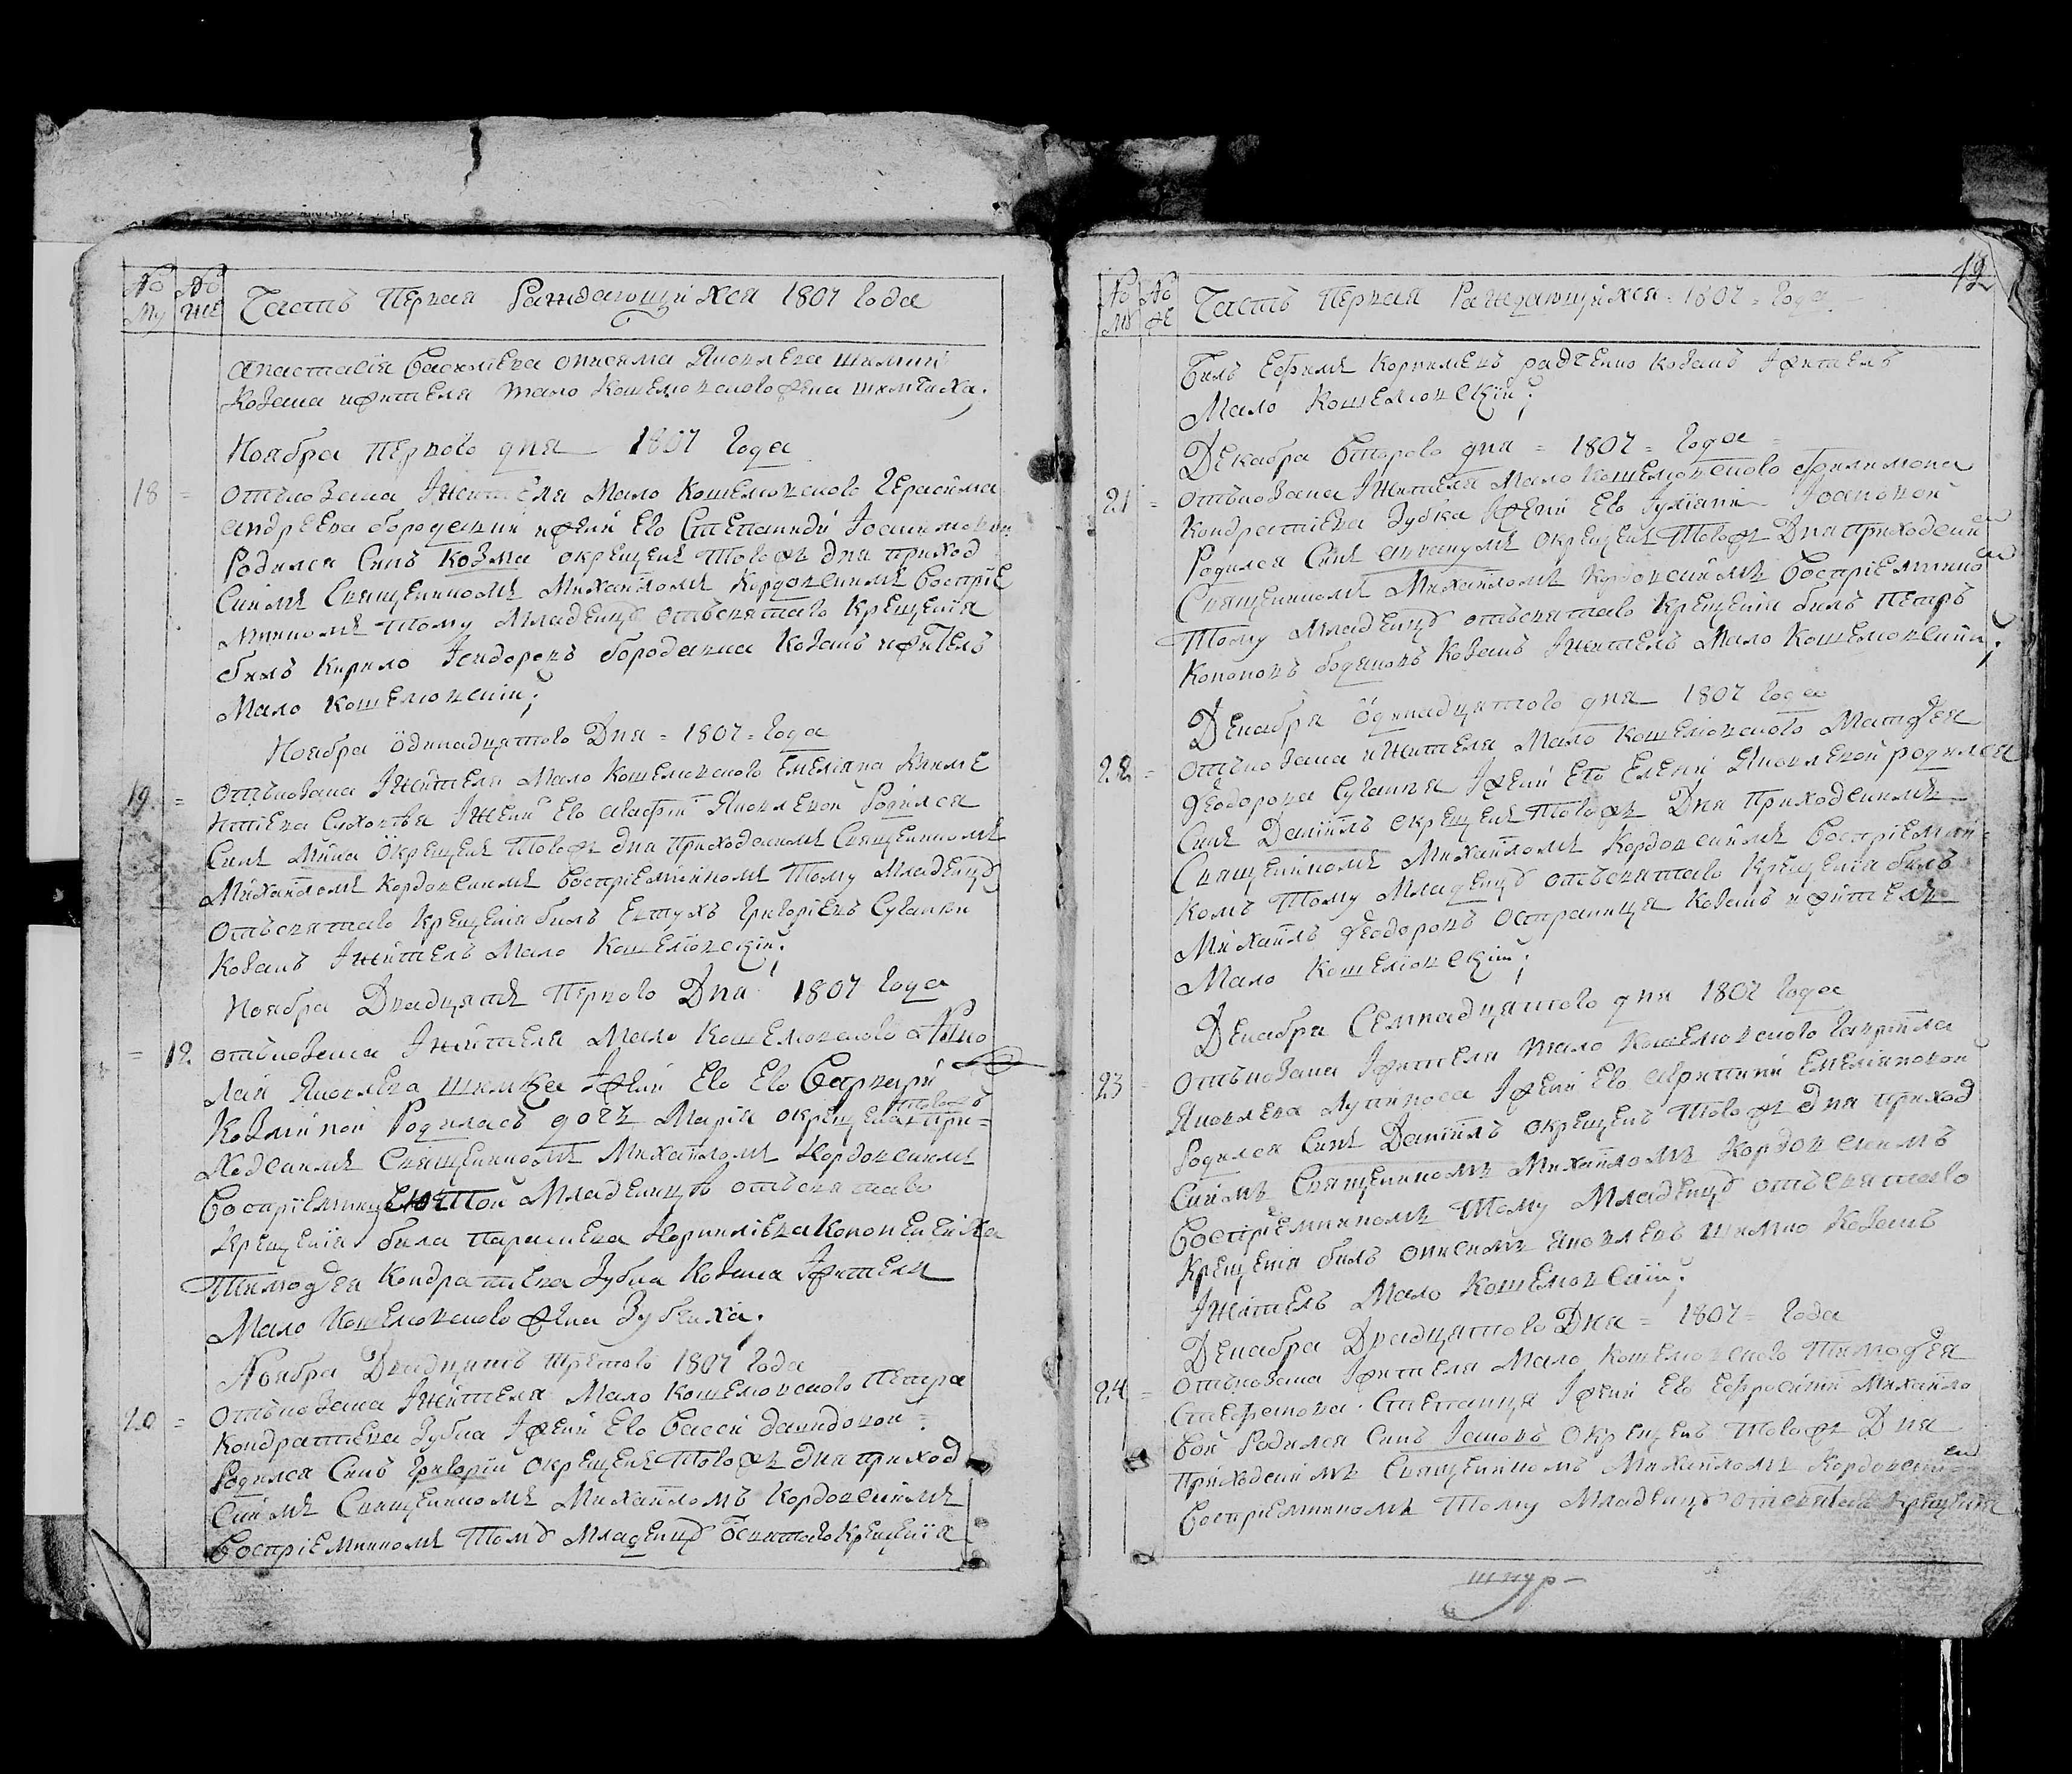 No
му
No
же
Часть Первая Раждающихся 1807 Года
анастасїя Василиева онисима Яковлева шимкиї
козака ижителя мало Кошелювского жена шимчиха;
Ноября Первого дня 1807 Года
18 = отъкозака Iжителя Мало Кошелювского Герасима
андреева бородавки ижени Его Степаниди
Родился Синъ Козма окрещенъ тогожъ дня приход
скимъ Священникомъ Михаиломъ Кордовскимъ Воспрїе
мникомъ тому Младенцу отъсвятаго Крещенїя
билъ Кирило Iсидоровъ бородавка Козакъ ижитель
Мало Кошелювский;
Ноября одинадцятого Дня = 1807 = Года
19 = Отъкозака Iжителя Мало Кошелювского Емелїяна Климе
нтїева Iжени Его агафїи Яковлевой Родился
Синъ Мина Окрещенъ тогожъ дня Приходскимъ Священникомъ
Михаиломъ Кордовскимъ Воспрїемникомъ Тому Младенцу
Отъсвятаго Крещенїя билъ Евтухъ Григорїевъ
Козакъ Iжитель Мало Кошелювский;
Ноября Двадцять Первого Дня 1807 Года
= 12 отъкозака Iжителя Мало Кошелювского Нико
лая Яковлева шимка Iжени Его Его Варвари
Козминой Родилась дочь Марїя окрещена тогожъ при=
ходскимъ Священникомъ Михаиломъ Кордовскимъ
Воспрїемницею Той Младенцъ отъсвятаго
Крещенїя била Параскева Корнилїева
Тимофея Кондратиева Зубка Козака Iжителя
Мало Кошелювского жена Зубчиха.
Ноября Двадцять третого 1807 Года
20 = Отъкозака Iжителя Мало Кошелювского Петра
Кондратиева Зубка Iжени Его Васси Давидовой =
Родился Синъ Григорїй Окрещенъ Тогожъ дня приход
скимъ Священникомъ Михаиломъ Кордовскимъ
Воспрїемникомъ Тому Младенцу Освятаго Крещенїя
12
No
му
No
же
Часть Первая Раждающихся = 1807 = Года
Билъ Ефимъ Корнилевъ радченко козакъ Iжитель
Мало Кошелювский;
Декабря Второго дня = 1807 = Года =
21 = Отъкозака Iжителя Мало Кошелювского Филимона
Кондратїева Зубка Iжени Его Iулїяни Iоановой
Родился Синъ Окрещенъ Тогожъ Дня приходским
Священникомъ Михаиломъ Кордовскимъ Воспрїемником
Тому Младенцу отъсвятаго Крещенїя билъ Петръ
Кононовъ Козакъ Iжитель Мало Кошелювский;
Декабря одинадцятого дня 1807 Года
22 = Отъкозака ижителя Мало Кошелювского Матфея
Феодорова Iжени Его Елени Яковлевой родился
Синъ Данїилъ Окрещенъ Тогожъ Дня Приходскимъ
Священникомъ Михаиломъ Кордовскимъ Воспрїемни
комъ Тому Младенцу отъсвятаго Крещенїя билъ
Михаилъ Феодоровъ Остраница Козакъ ижитель
Мало Кошелювский;
Декабря Семнадцятого дня 1807 Года
23 Отъкозака Iжителя мало Кошелювского Гаврїила
Яковлева Iжени Его Емелїяновой
Родился Синъ Данїилъ окрещенъ Тогожъ дня приход
скимъ Священникомъ Михаиломъ Кордовскимъ
Воспрїемникомъ Тому Младенцу отъсвятаго
Крещенїя билъ онисимъ Яковлевъ шимко Козакъ
Iжитель Мало Кошелювский;
Декабря Двадцятого Дня = 1807 = Года
24 = Отъкозака Iжителя Мало Кошелювского Тимофея
Стефанова Iжени Его Ефросинии Михайло
вой Родился Синъ Окрещенъ Тогожъ Дня
Приходскимъ Священникомъ Михаиломъ Кордовским
Воспрїемникомъ Тому Младенцу отсвятаго Крещения
шнур